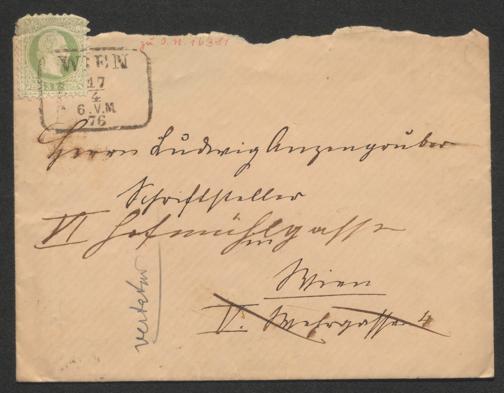 zu I.N. 16381
WIEN
17
4
6.V.M
76
Herrn Ludwig Anzengruber
Schriftsteller
VI Hofmühlgasse
in
Wien
V. Wehrgasse 4